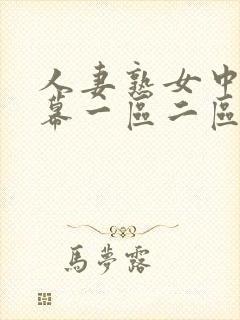 人妻熟女中
幕一區二區
馬夢露